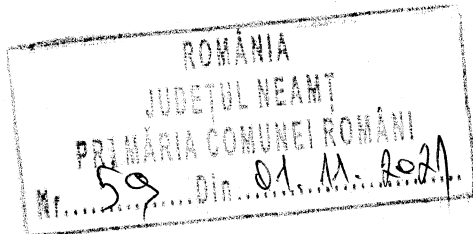 ROMÂNIA
JUDEȚUL NEAMȚ
PRIMĂRIA COMUNEI ROMÂNI
Nr. 59 Din 01. 11. 2021